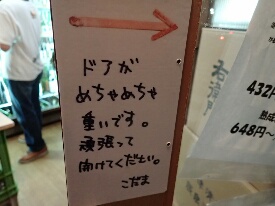 ドアが
めちゃめちゃ
重いです。
頑張って
開けてください。
こだま
432円
熟成
648円~